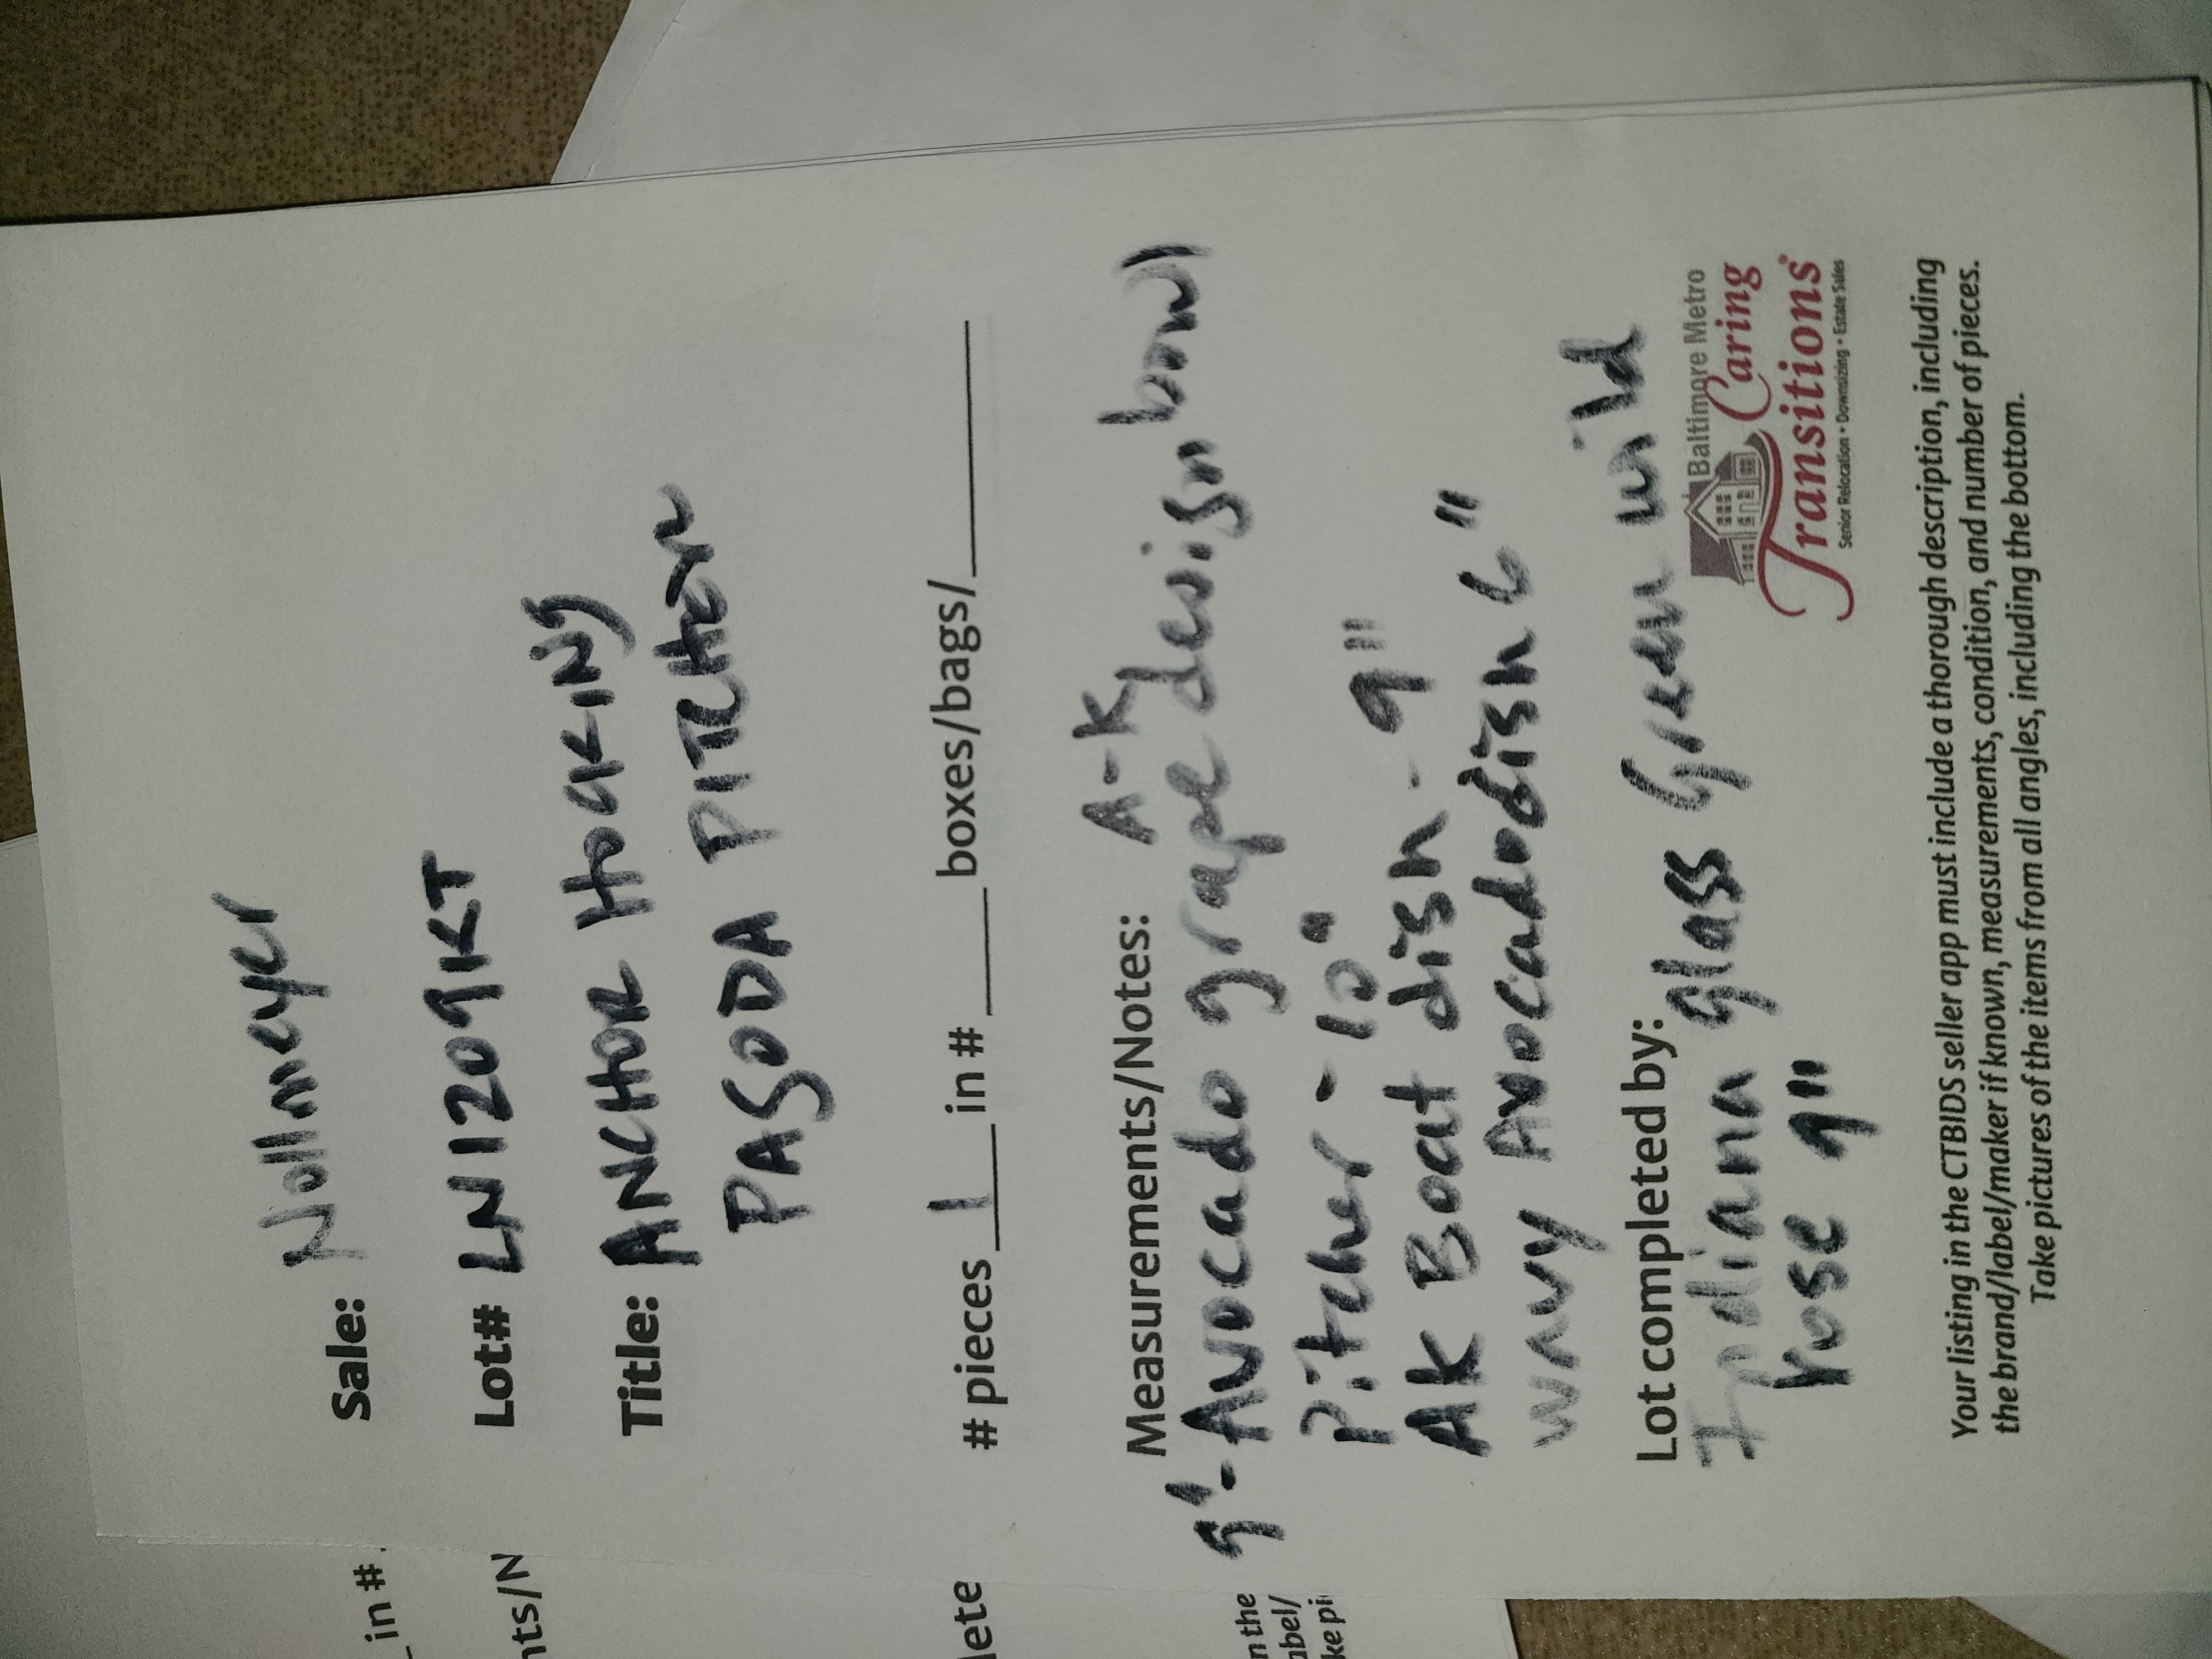 Sale: Nollmeyer
Lot# LN1209KT
Title: ANCHOR HOCKING
PAGODA PITCHER
# pieces 1 in # ____ boxes/bags/____
Measurements/Notes: A-K
9"- Avocado grape design bowl
Pitcher - 10"
AK Boat dish - 9"
wavy Avocado dish 6"
Lot completed by:
Indiana glass Green wild
rose 9"
Baltimore Metro
Caring
Transitions
Senior Relocation • Downsizing • Estate Sales
Your listing in the CTBIDS seller app must include a thorough description, including
the brand/label/maker if known, measurements, condition, and number of pieces.
Take pictures of the items from all angles, including the bottom.
_in #
nts/N
lete
n the
abel/
ke pi